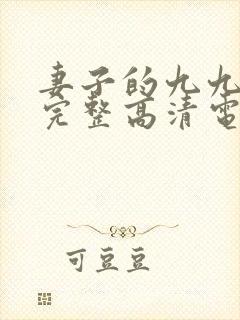 妻子的九九
完整高清電
可豆豆